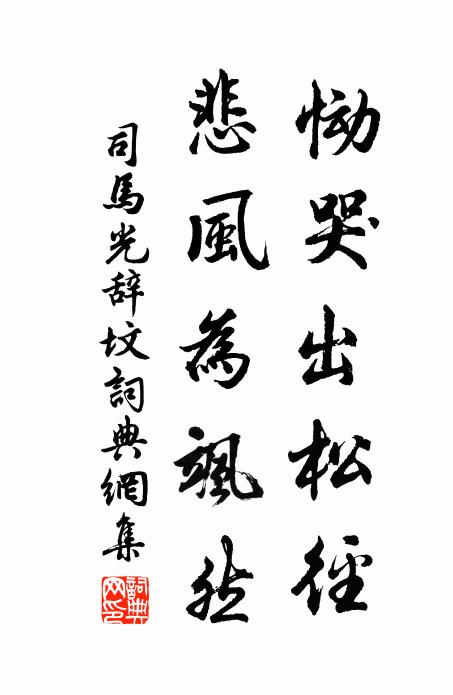 恸哭出松径
悲風為颯然
司馬光辞坟詞典網集
詞典